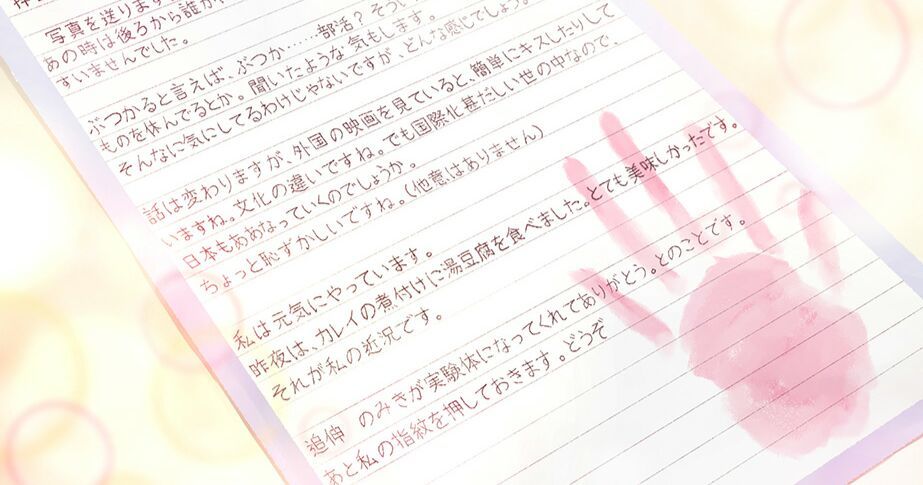 写真を送ります
あの時は後ろから誰か
すいませんでした。
ぶつかると言えば、ぶつか……部活？そうい
ものを休んでるとか。聞いたような気もします。
そんなに気にしてるわけじゃないですが、どんな感じでしょう。
話は変わりますが、外国の映画を見ていると、簡単にキスしたりして
いますね。文化の違いですね。でも国際化甚だしい世の中なので、
日本もああなっていくのでしょうか。
ちょっと恥ずかしいですね。（他意はありません）
私は元気にやっています。
昨夜は、カレイの煮付けに湯豆腐を食べました。とても美味しかったです。
それが私の近況です。
追伸　のみきが実験体になってくれてありがとう。とのことです。
あと私の指紋を押しておきます。どうぞ